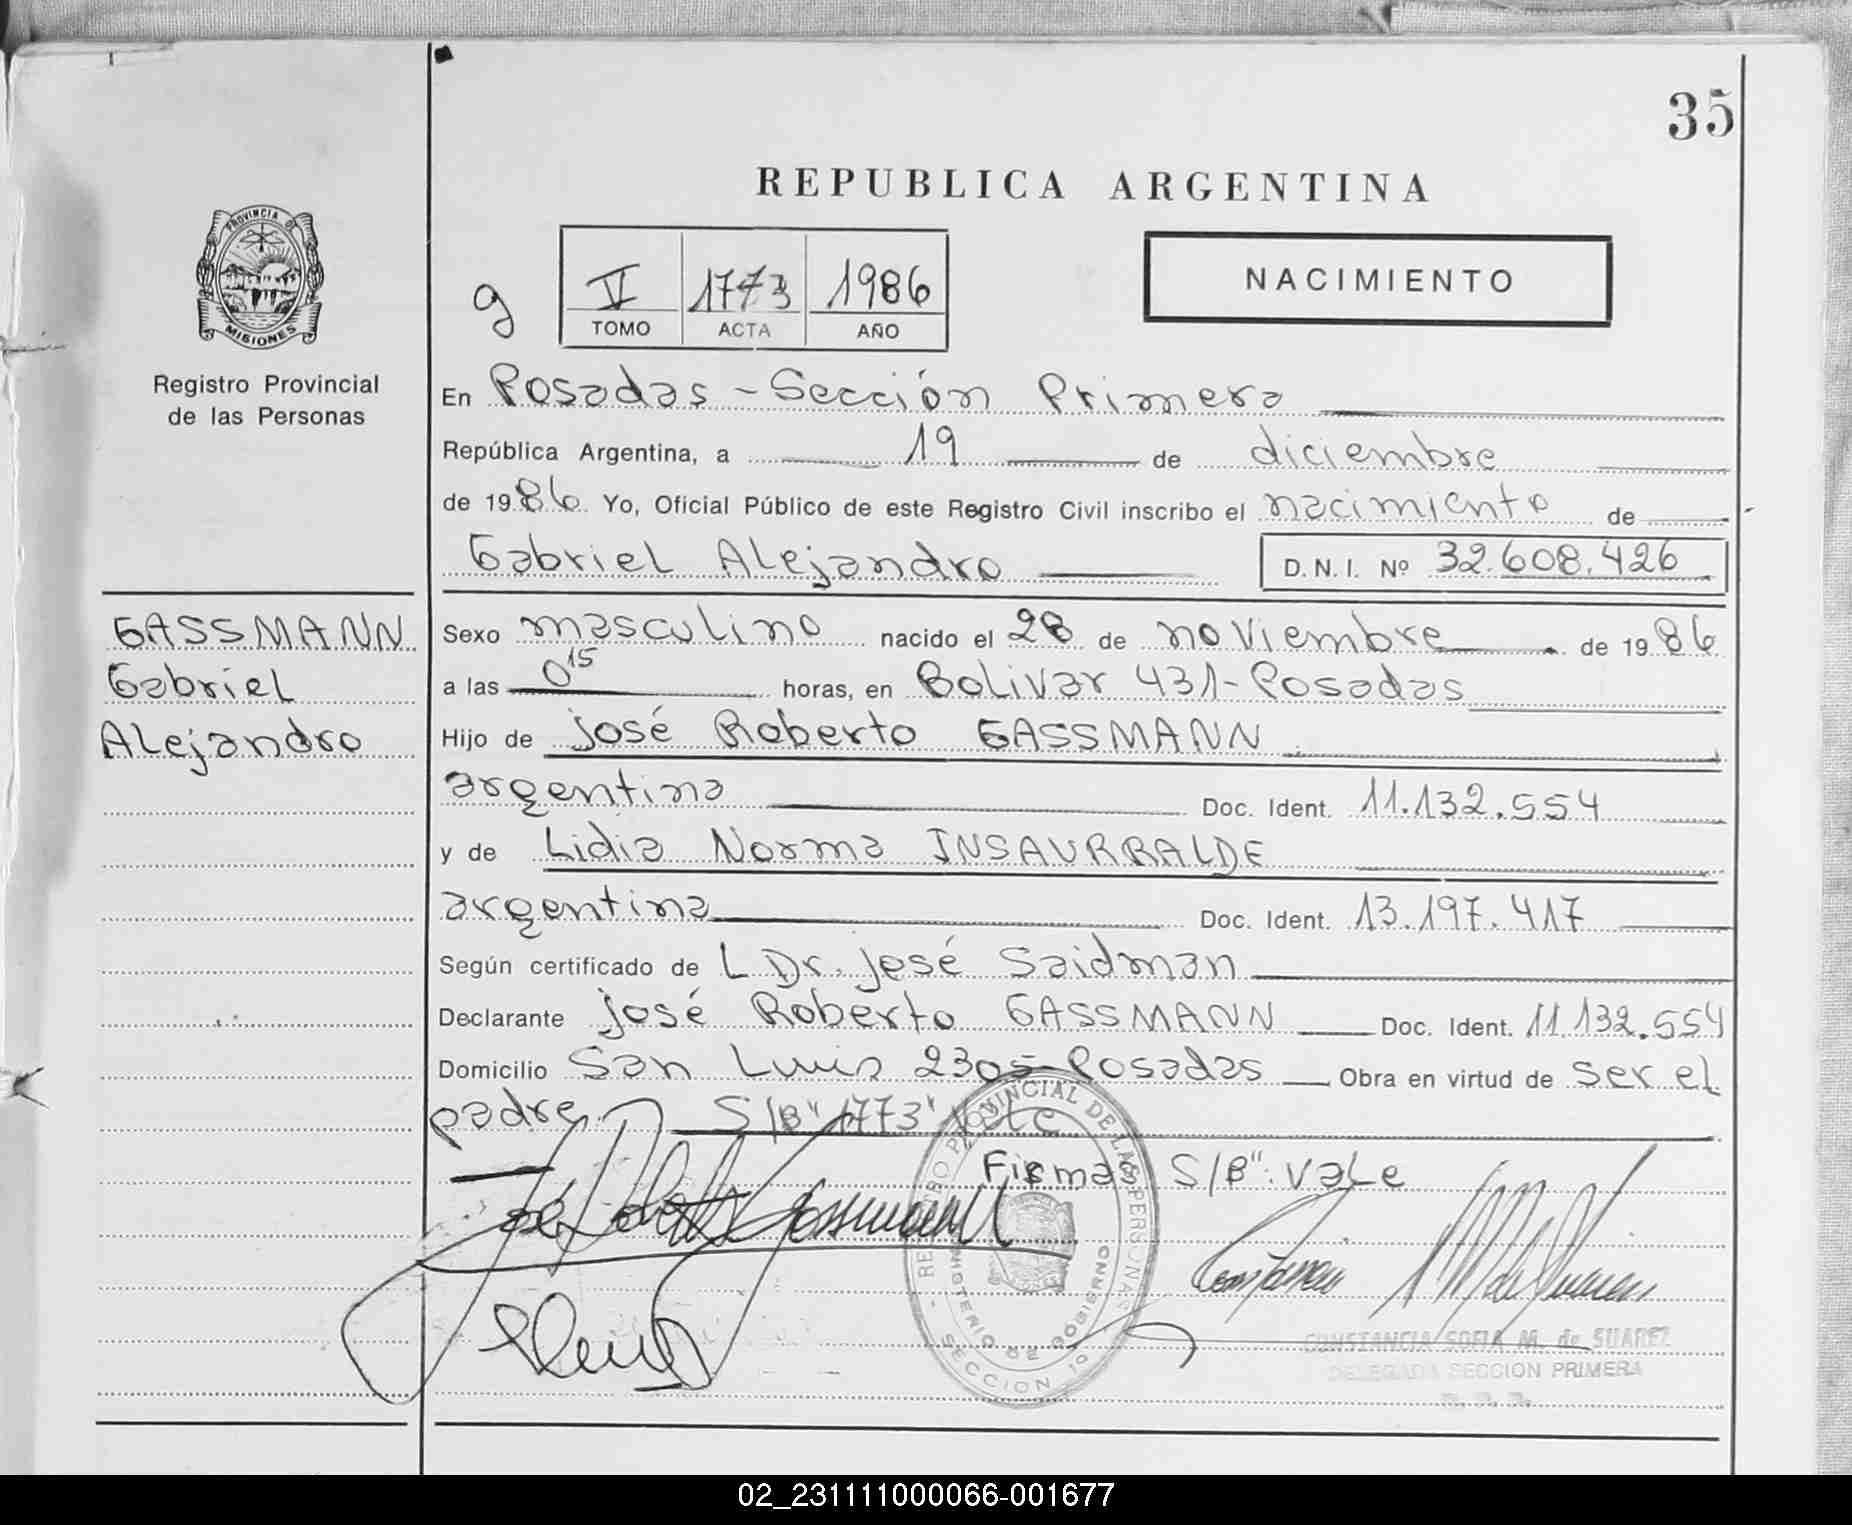 35
REPUBLICA ARGENTINA
PROVINCIA DE
MISIONES
Registro Provincial
de las Personas
g
V 1773 1986
TOMO ACTA AÑO
NACIMIENTO
En Posadas - Sección Primera
República Argentina, a 19 de diciembre
de 1986 Yo, Oficial Público de este Registro Civil inscribo el nacimiento de
Gabriel Alejandro D.N.I. Nº 32.608.426
GASSMANN
Gabriel
Alejandro
Sexo masculino nacido el 28 de noviembre de 1986
a las 0 15 horas, en Bolivar 431 - Posadas
Hijo de José Roberto GASSMANN
argentina Doc. Ident. 11.132.554
y de Lidia Norma INSAURRALDE
argentina Doc. Ident. 13.197.417
Según certificado de L Dr. José Saidman
Declarante José Roberto GASSMANN Doc. Ident. 11.132.554
Domicilio San Luis 2305 Posadas Obra en virtud de ser el
padre. S/B" 1773" Vale
Firmas S/B": Vale
José Roberto Gassmann
REGISTRO PROVINCIAL DE LAS PERSONAS
MINISTERIO DE GOBIERNO
SECCION 1a
CONSTANCIA SOFIA M. de SUAREZ
DELEGADA SECCION PRIMERA
02_231111000066-001677